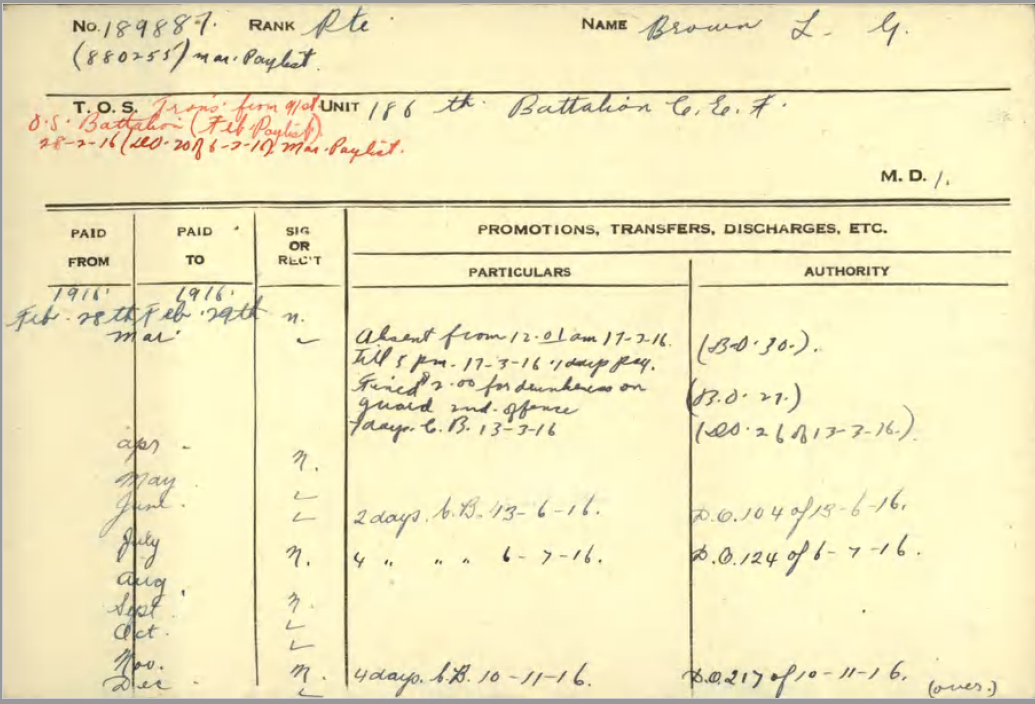 No. 189887. RANK Pte NAME Brown L. G.
(880255) Mar. Paylist.
T.O.S. Trans from 91st UNIT 186 th. Battalion C.E.F.
O.S. Battalion (Feb. Paylist)
28-2-16 (DO. 20 of 6-2-17) Mar. Paylist.
M. D. 1.
PAID FROM PAID TO SIG OR REC'T PROMOTIONS, TRANSFERS, DISCHARGES, ETC.
PARTICULARS AUTHORITY
1916. 1916.
Feb. 28th Feb. 29th n.
Mar. Absent from 12.01 am 17-3-16. (B.O. 30.).
till 5 pm. 17-3-16. 1 days pay.
Fined $2.00 for drunkeness on (B.O. 27.)
guard 2nd. offence
7 days. C.B. 13-3-16 (DO. 26 of 13-3-16.)
Apr. n.
May
June 2 days. C.B. 13-6-16. D.O. 104 of 13-6-16.
July n. 4 " " " 6-7-16. D.O. 124 of 6-7-16.
Aug
Sept n.
Oct.
Nov. n. 4 days. C.B. 10-11-16. D.O. 217 of 10-11-16.
Dec (over.)